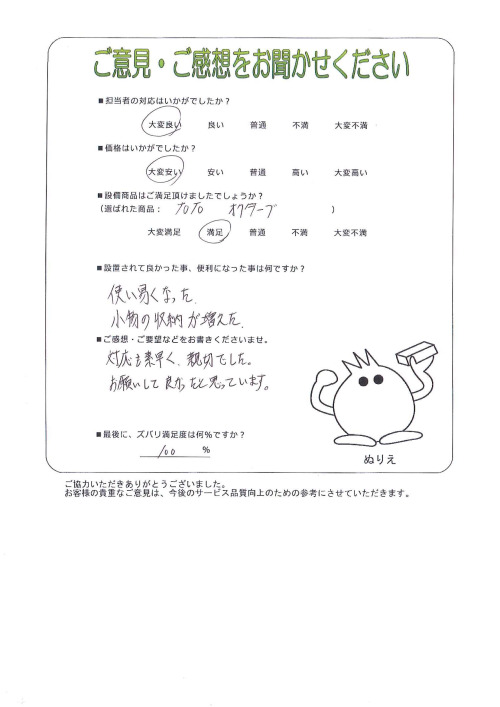 ご意見・ご感想をお聞かせください
■担当者の対応はいかがでしたか？
大変良い 良い 普通 不満 大変不満
■価格はいかがでしたか？
大変安い 安い 普通 高い 大変高い
■設備商品はご満足頂けましたでしょうか？
（選ばれた商品： TOTO オクターブ ）
大変満足 満足 普通 不満 大変不満
■設置されて良かった事、便利になった事は何ですか？
使い易くなった.
小物の収納が増えた.
■ご感想・ご要望などをお書きくださいませ。
対応も素早く、親切でした。
お願いして良かったと思っています。
■最後に、ズバリ満足度は何％ですか？
100 %
ぬりえ
ご協力いただきありがとうございました。
お客様の貴重なご意見は、今後のサービス品質向上のための参考にさせていただきます。